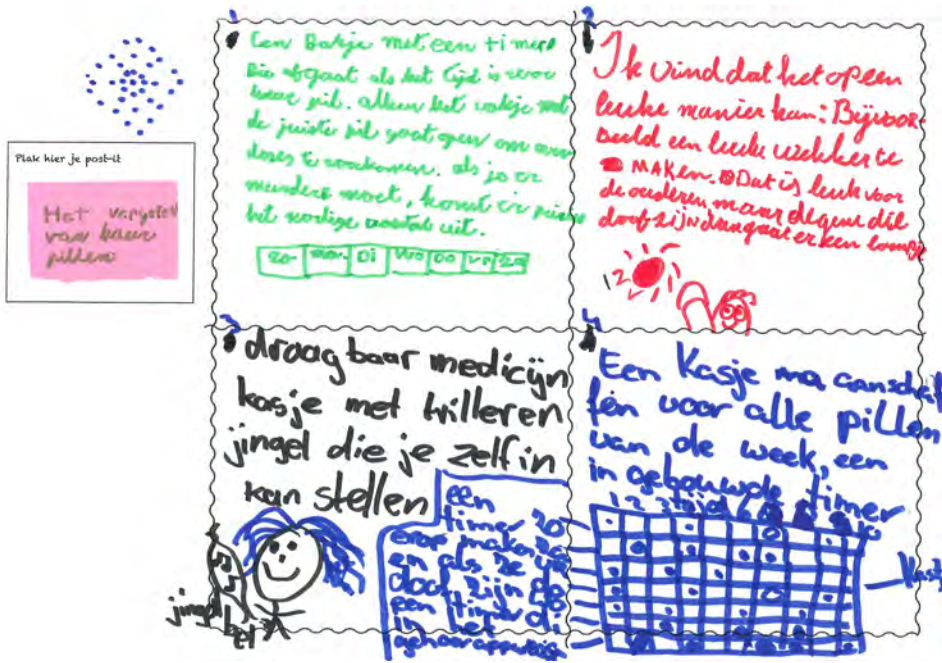 Plak hier je post-it
Het vergeten
van haar
pillen
1
Een Bakje met een timer
Die afgaat als het tijd is voor
haar pil. alleen het vakje met
de juiste pil gaat open om over
doses te voorkomen. als je er
meerdere moet, komt er precies
het nodige aantal uit.
zo ma Di Wo Do vr za
2
Ik vind dat het op een
leuke manier kan: Bijvoor-
beeld een leuke wekker te
MAKen. Dat is leuk voor
de ouderen maar degene die
doof zijn dan gaat er een lampje
12
3
draagbaar medicijn
kasje met trilleren
jingel die je zelf in
kan stellen
jingel
bel
een
timer
erop maken
en als ze
doof zijn
een timer
in het
gehoorapparaat
4
Een Kasje ma aanschaf
fen voor alle pillen
van de week, een
in gebouwde timer
zo
ma
vr
di
Kast